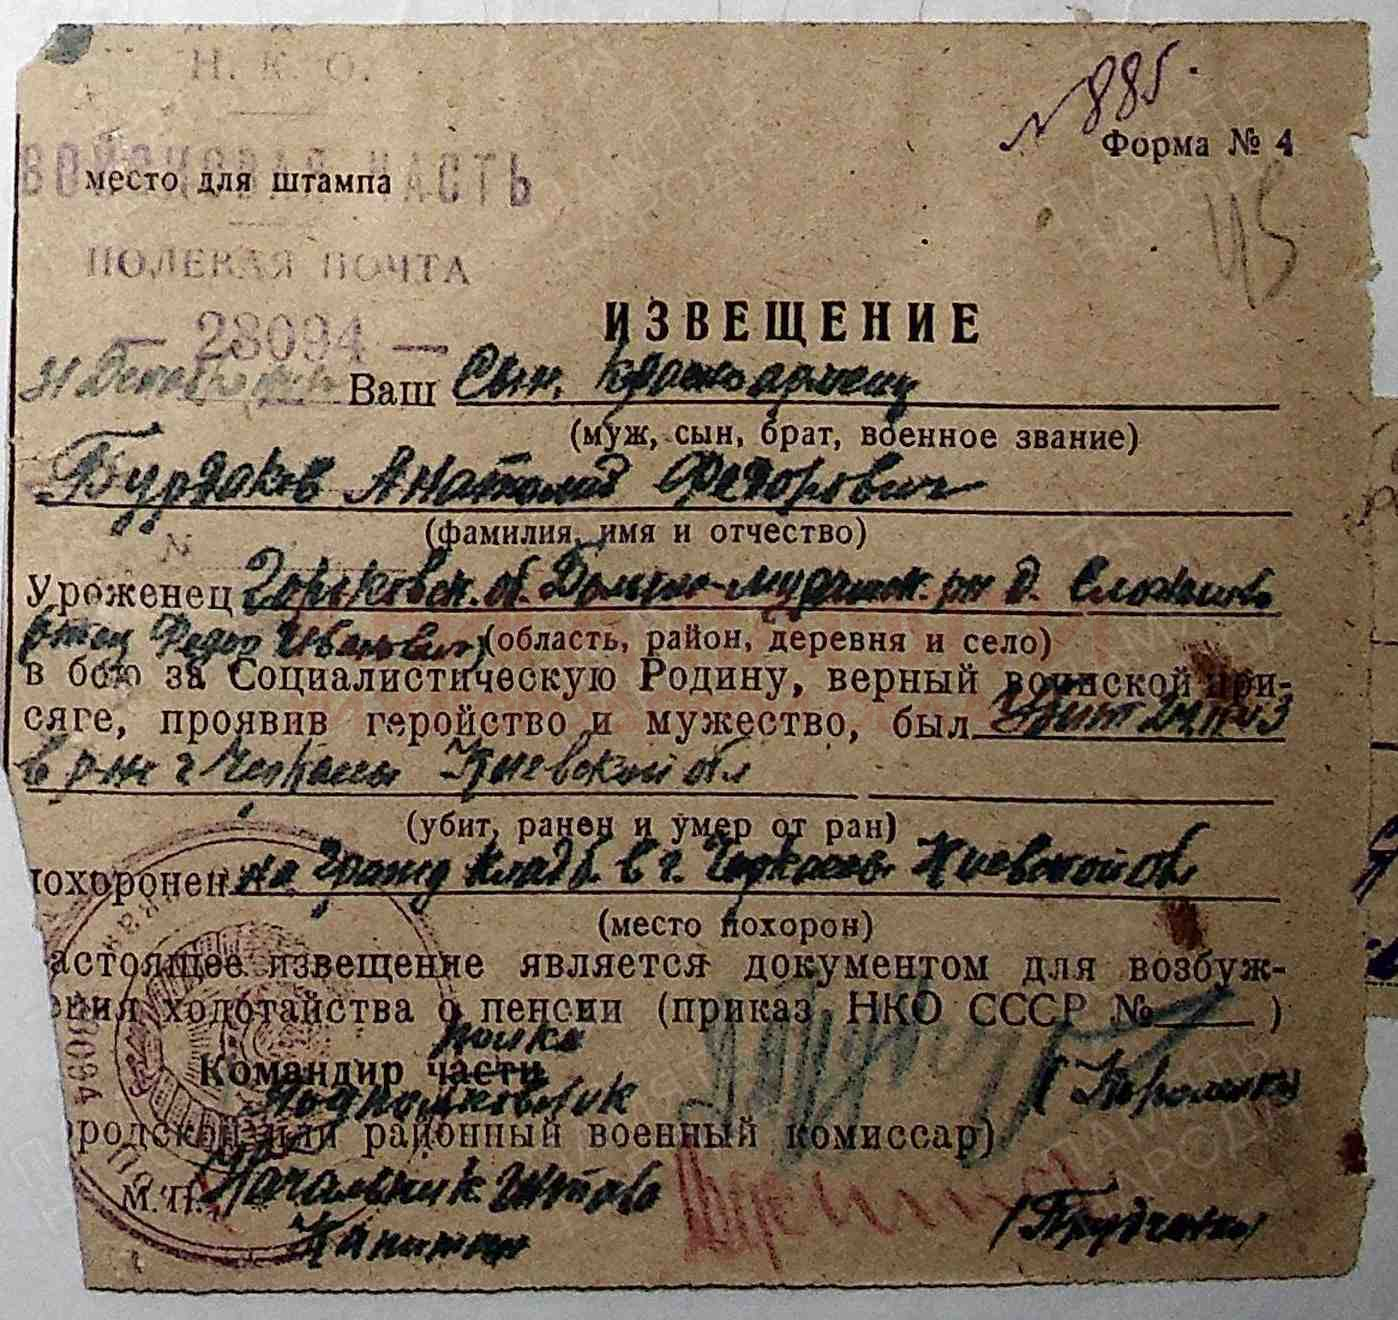 Н. К. О.
№ 885.
Форма № 4
ВОЙСКОВАЯ ЧАСТЬ
место для штампа
45
ПОЛЕВАЯ ПОЧТА
— 28094 —
ИЗВЕЩЕНИЕ
31 Декабря Ваш Сын, красноармеец
(муж, сын, брат, военное звание)
Бурдаков Анатолий Федорович
(фамилия, имя и отчество)
№
Уроженец Горьковск. об. Больше-мурашк. рн д.
отец Федор Иванович (область, район, деревня и село)
в бою за Социалистическую Родину, верный воинской при-
сяге, проявив геройство и мужество, был Убит
в р-не г Черкассы Киевской обл
(убит, ранен и умер от ран)
похоронен на гражд кладб. в г. Черкассы Киевской обл
(место похорон)
астоящее извещение является документом для возбуж-
ения ходотайства о пенсии (приказ НКО СССР № )
полка
Командир части
Подполковник
ородской или районный военный комиссар)
М. П. Начальник штаба
Капитан
28094
ПАМЯТЬ НАРОДА